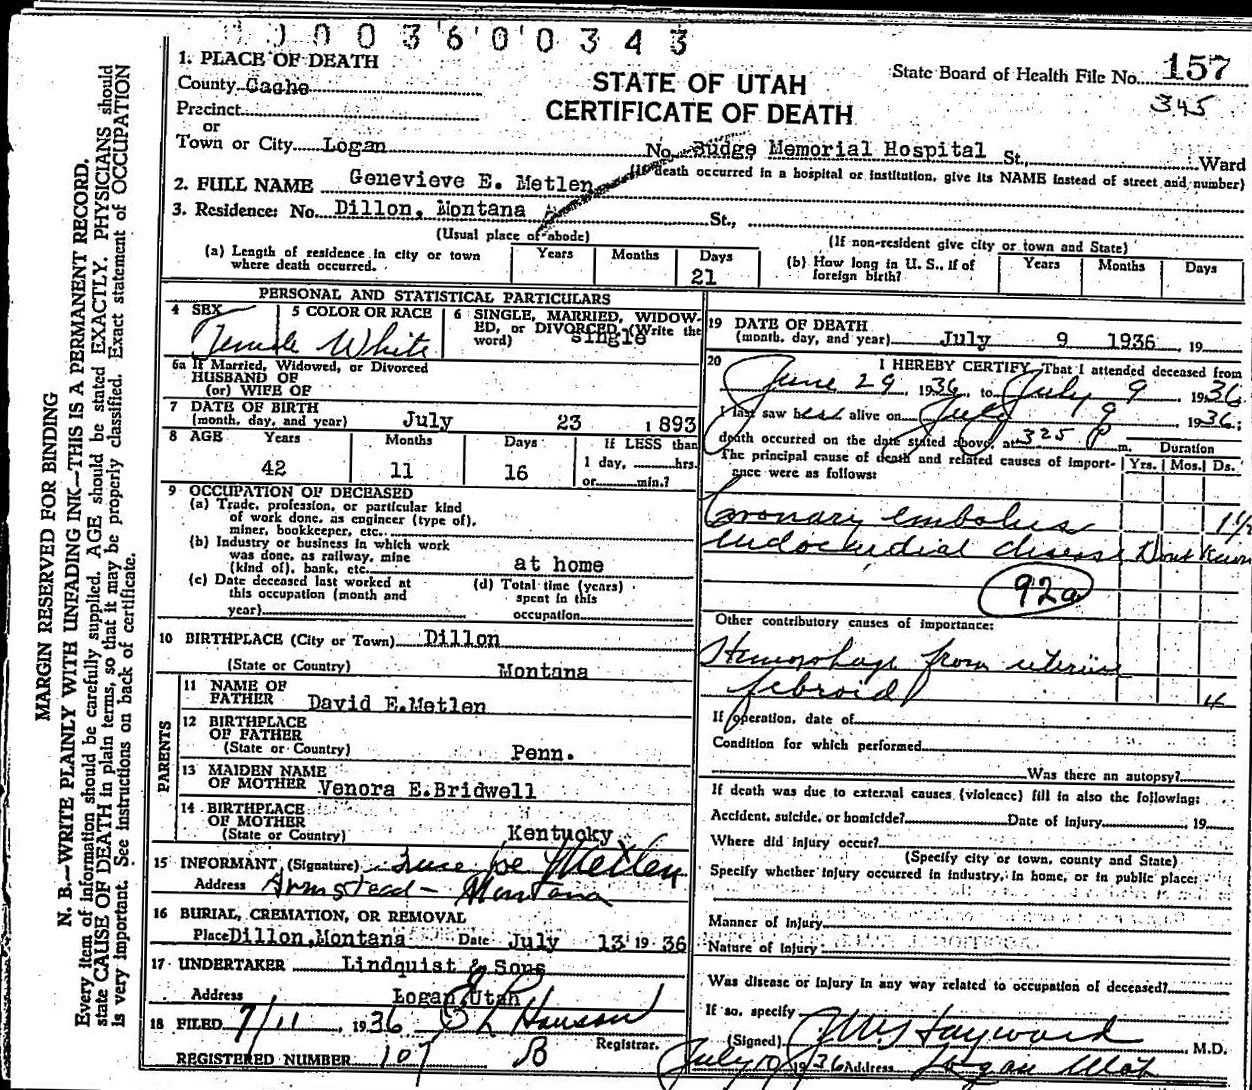 1 0 0 3 6 0 0 3 4 3
1. PLACE OF DEATH
County Cache
Precinct
or
Town or City Logan
STATE OF UTAH
CERTIFICATE OF DEATH
State Board of Health File No. 157
345
No. Budge Memorial Hospital St., Ward
(If death occurred in a hospital or institution, give its NAME instead of street and number)
2. FULL NAME Genevieve E. Metlen
3. Residence: No. Dillon, Montana St.,
(Usual place of abode)
(If non-resident give city or town and State)
(a) Length of residence in city or town where death occurred. Years Months Days 21
(b) How long in U. S., if of foreign birth? Years Months Days
PERSONAL AND STATISTICAL PARTICULARS
4 SEX Female
5 COLOR OR RACE White
6 SINGLE, MARRIED, WIDOW-
ED, or DIVORCED (Write the
word) Single
6a If Married, Widowed, or Divorced
HUSBAND OF
(or) WIFE OF
7 DATE OF BIRTH
(month, day, and year) July 23 1893
8 AGE Years Months Days If LESS than
42 11 16 1 day, hrs.
or min.?
9 OCCUPATION OF DECEASED
(a) Trade, profession, or particular kind
of work done, as engineer (type of),
miner, bookkeeper, etc.
(b) Industry or business in which work
was done, as railway, mine
(kind of), bank, etc. at home
(c) Date deceased last worked at
this occupation (month and
year)
(d) Total time (years)
spent in this
occupation
10 BIRTHPLACE (City or Town) Dillon
(State or Country) Montana
PARENTS
11 NAME OF
FATHER David E.Metlen
12 BIRTHPLACE
OF FATHER
(State or Country) Penn.
13 MAIDEN NAME
OF MOTHER Venora E.Bridwell
14 BIRTHPLACE
OF MOTHER
(State or Country) Kentucky
15 INFORMANT (Signature) Joe Metlen
Address Armstead - Montana
16 BURIAL, CREMATION, OR REMOVAL
Place Dillon, Montana Date July 13 19 36
17 UNDERTAKER Lindquist & Sons
Address Logan, Utah
18 FILED 7/11, 1936 Hanson
Registrar.
REGISTERED NUMBER 107 B
19 DATE OF DEATH
(month, day, and year) July 9 1936, 19
20 I HEREBY CERTIFY, That I attended deceased from
June 29, 1936, to July 9 1936
I last saw her alive on July 9 1936;
death occurred on the date stated above, at 325 P m. Duration
The principal cause of death and related causes of import-
ance were as follows: Yrs. Mos. Ds.
Coronary embolus
endocardial disease Dont Know
92a
Other contributory causes of importance:
Hemorrhage from uterine
febroid 4
If operation, date of
Condition for which performed
Was there an autopsy?
If death was due to external causes (violence) fill in also the following:
Accident, suicide, or homicide? Date of Injury 19
Where did injury occur?
(Specify city or town, county and State)
Specify whether injury occurred in industry, in home, or in public place:
Manner of Injury
Nature of Injury
Was disease or injury in any way related to occupation of deceased?
If so, specify
(Signed) J.W. Hayward M.D.
July 10 1936 Address Logan Utah
MARGIN RESERVED FOR BINDING
N. B.—WRITE PLAINLY WITH UNFADING INK—THIS IS A PERMANENT RECORD.
Every item of information should be carefully supplied. AGE should be stated EXACTLY. PHYSICIANS should
state CAUSE OF DEATH in plain terms, so that it may be properly classified. Exact statement of OCCUPATION
is very important. See instructions on back of certificate.